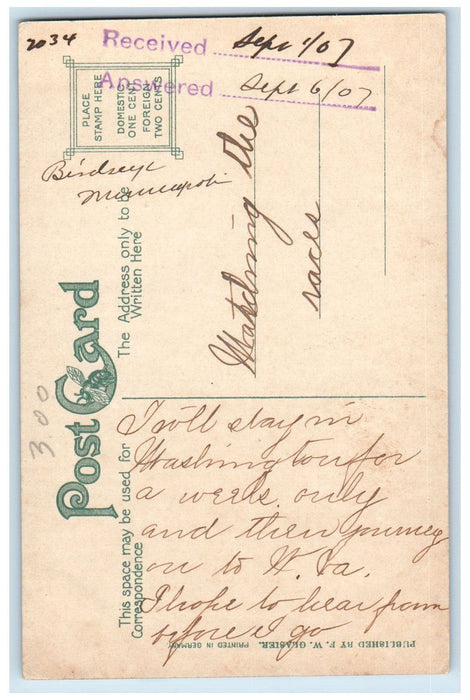 2034
Received Sept 1/07
Answered Sept 6/07
PLACE
STAMP HERE
DOMESTIC
ONE CENT
FOREIGN
TWO CENTS
Birdseye
Minneapolis
Post Card
The Address only to be
Written Here
Watching the
races
300
This space may be used for
Correspondence
I will stay in
Washington for
a week only
and then journey
on to W. Va.
I hope to hear from
before I go
PUBLISHED BY F. W. GLASIER. PRINTED IN GERMANY